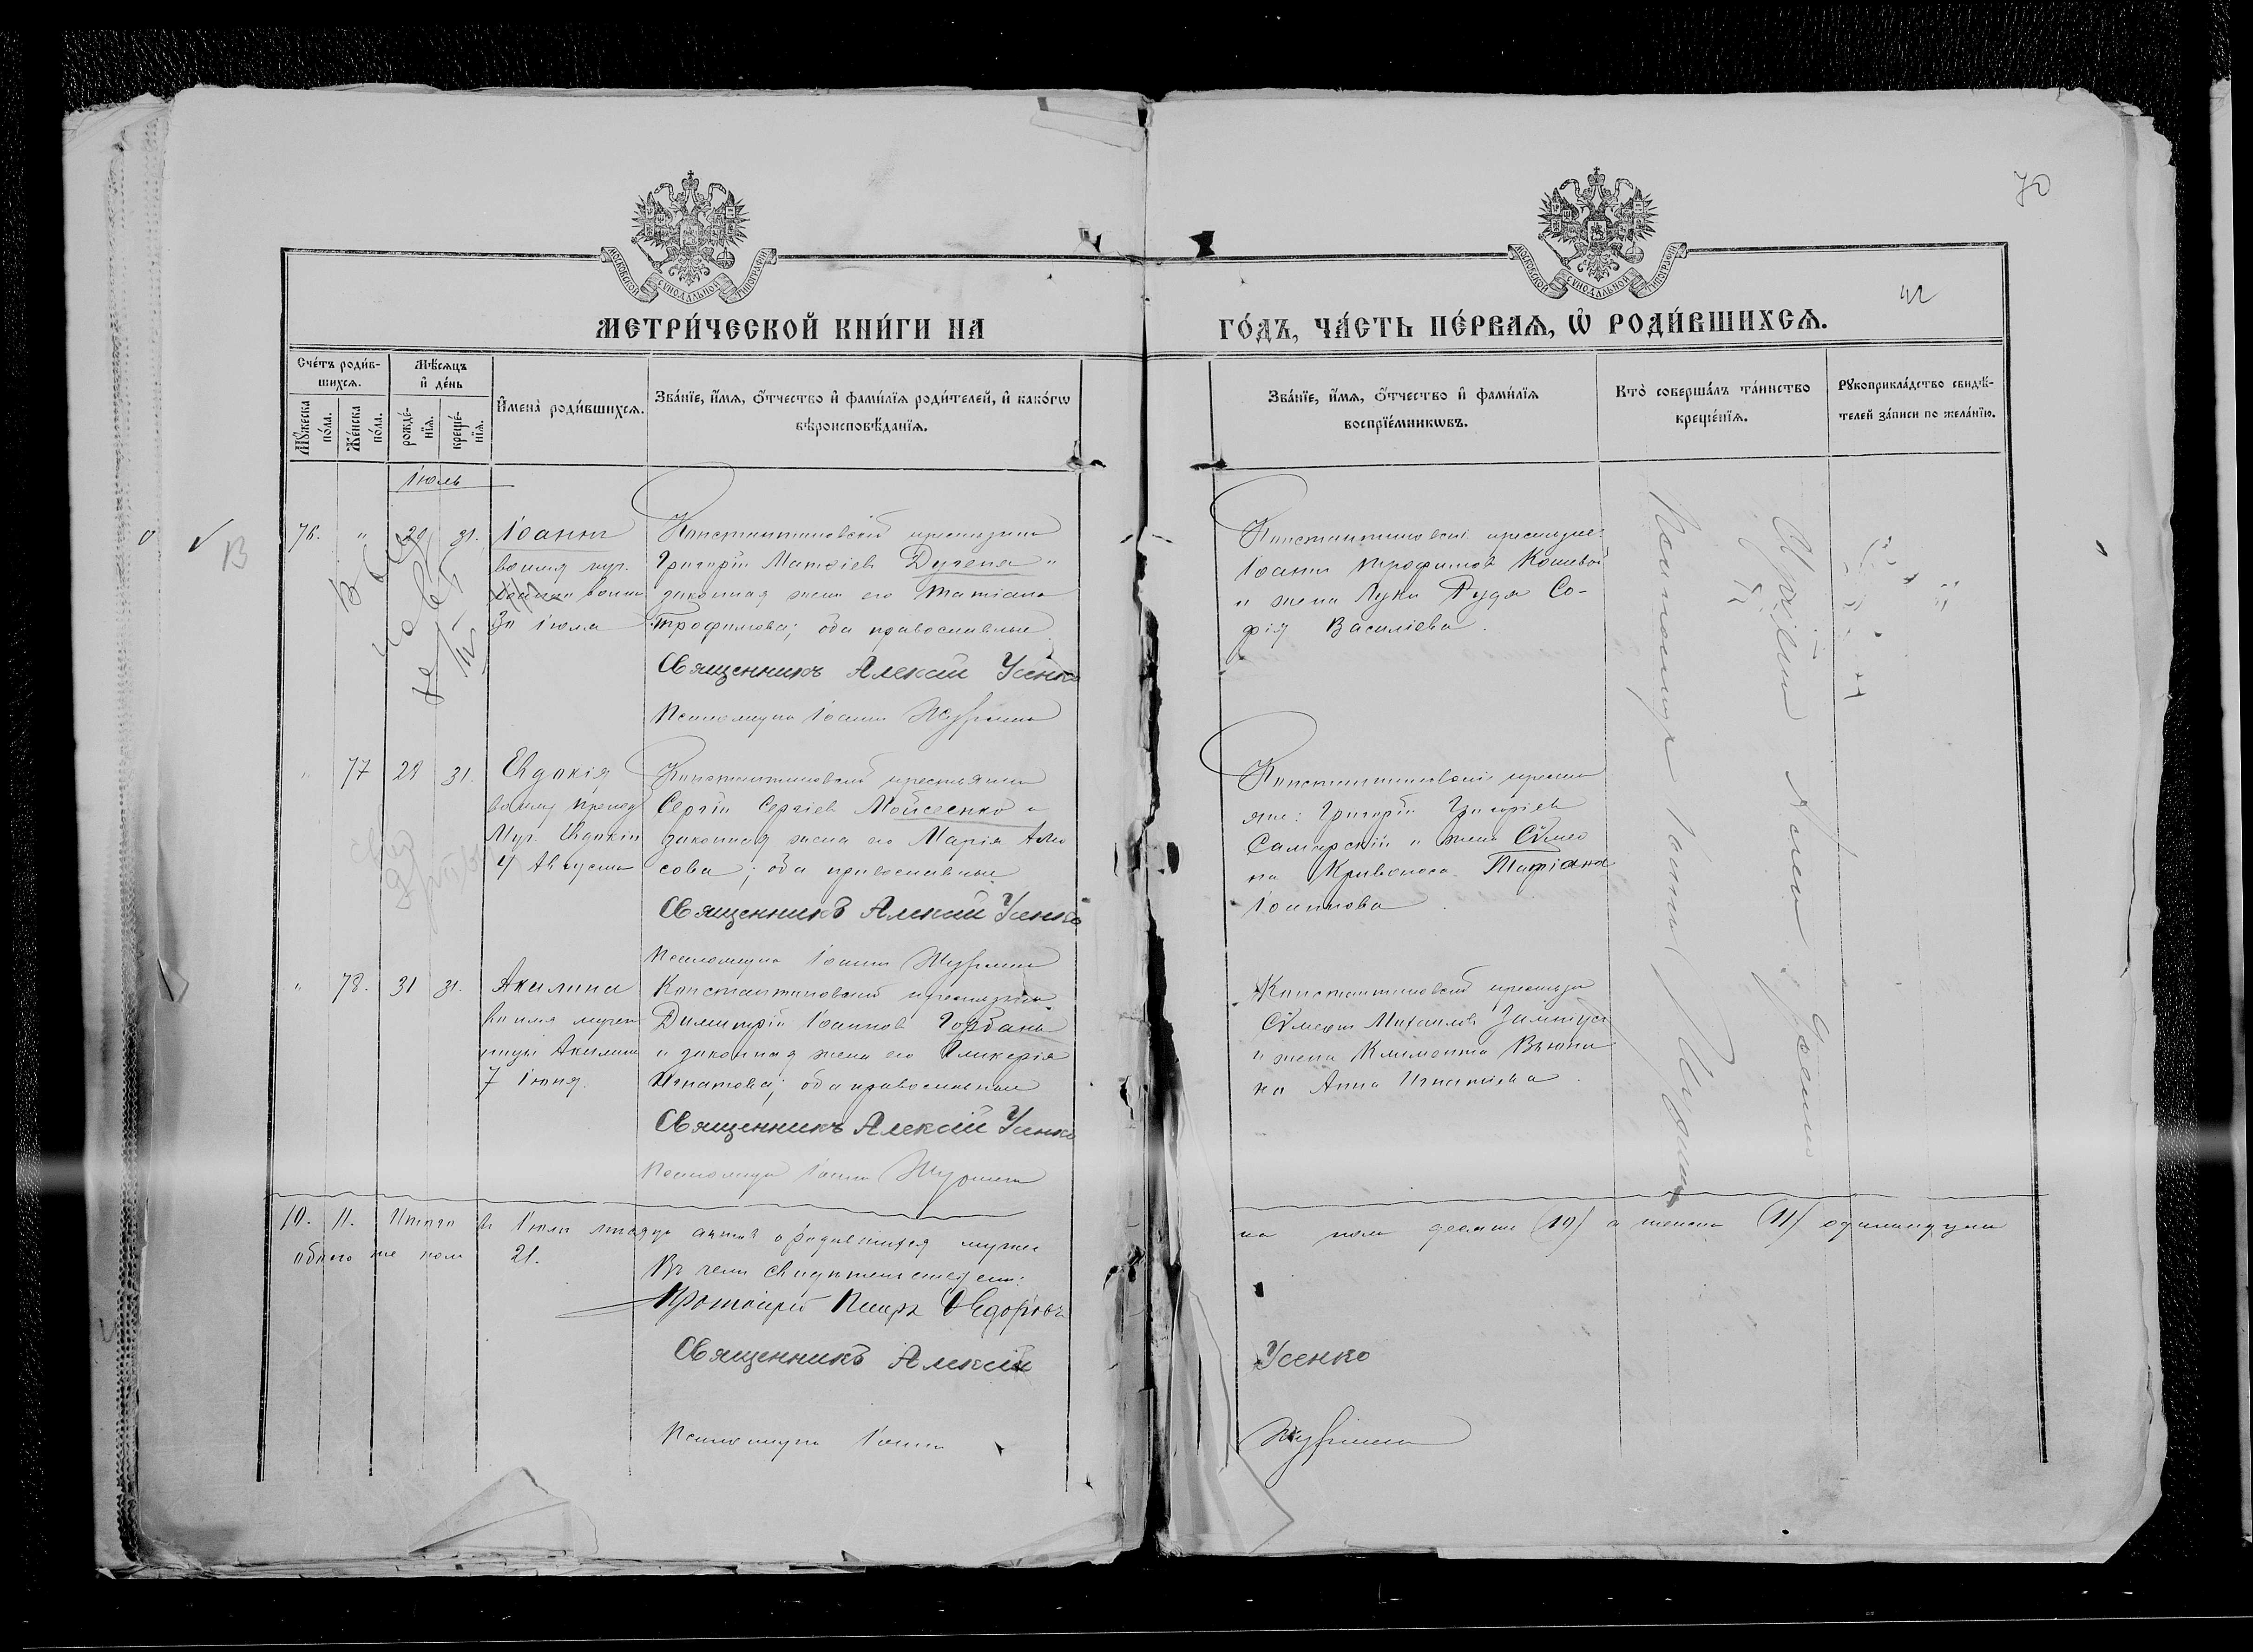 70
42
МОСКОВСКОЙ СѴНОДАЛЬНОЙ ТИПОГРАФІИ
МОСКОВСКОЙ СѴНОДАЛЬНОЙ ТИПОГРАФІИ
МЕТРИ́ЧЕСКОЙ КНИ́ГИ НА
ГО́ДЪ, ЧА́СТЬ ПЕ́РВАѦ, Ѡ҆ РОДИ́ВШИХСѦ.
Сче́тъ роди́в-
шихсѧ.
Мꙋ́жеска по́ла.
Же́нска по́ла.
Мѣ́сѧцъ
и҆ де́нь
рожде́-нїѧ.
креще́-нїѧ.
И҆мена̀ роди́вшихсѧ.
Зва́нїе, и҆́мѧ, ѻ҆́тчество и҆ фами́лїѧ роди́телей, и҆ како́гѡ
вѣроисповѣ́данїѧ.
Зва́нїе, и҆́мѧ, ѻ҆́тчество и҆ фами́лїѧ
воспрїе́мникѡвъ.
Кто̀ соверша́лъ та́инство
креще́нїѧ.
Рꙋкоприкла́дство свидѣ́-
телей за́писи по жела́нїю.
Іюль
76. " 29 31. Іоаннъ
во имя муч.
Іоанна воина
30 Іюля
Константиновскій крестьянинъ
Григорій Матѳіевъ Дугена и
законная жена его Татіана
Трофимова; оба православные
Священникъ Алексій Усенко
Псаломщикъ Іоаннъ
Константиновскіе крестьяне:
Іоаннъ Трофимовъ Кошевой
и жена Луки Рудя Со-
фія Василіева.
" 77 29 31. Евдокія
во имя препод
Муч. Евдокіи
4 Августа
Константиновскій крестьянинъ
Сергій Сергіевъ Мойсеенко и
законная жена его Марія Амо
сова; оба православные
Священникъ Алексій Усенко
Псаломщикъ Іоаннъ
Константиновскіе кресть
яне: Григорій Григоріевъ
Самарскій и жена Сѵмео
на Кривоноса Татіана
Іоаннова
" 78. 31 31. Акилина
во имя мучен
ницы Акилины
7 Іюня.
Константиновскій крестьянинъ
Димитрій Іоанновъ Горбань
и законная жена его Гликерія
Игнатова; оба православные
Священникъ Алексій Усенко
Псаломщикъ Іоаннъ
Константиновскій крестьян
Сѵмеонъ Михаиловъ
и жена Климента Вьюни
ка Анна Игнатіева.
10. 11. Итого въ Іюлѣ мѣсяцѣ актовъ о родившихся мужес
ка пола десять (10) а женска (11) одиннадцать
обоего же пола 21.
Въ чемъ свидѣтельствуемъ:
Протоіерей Петръ Ѳедоровъ
Священникъ Алексій Усенко
Псаломщикъ Іоаннъ